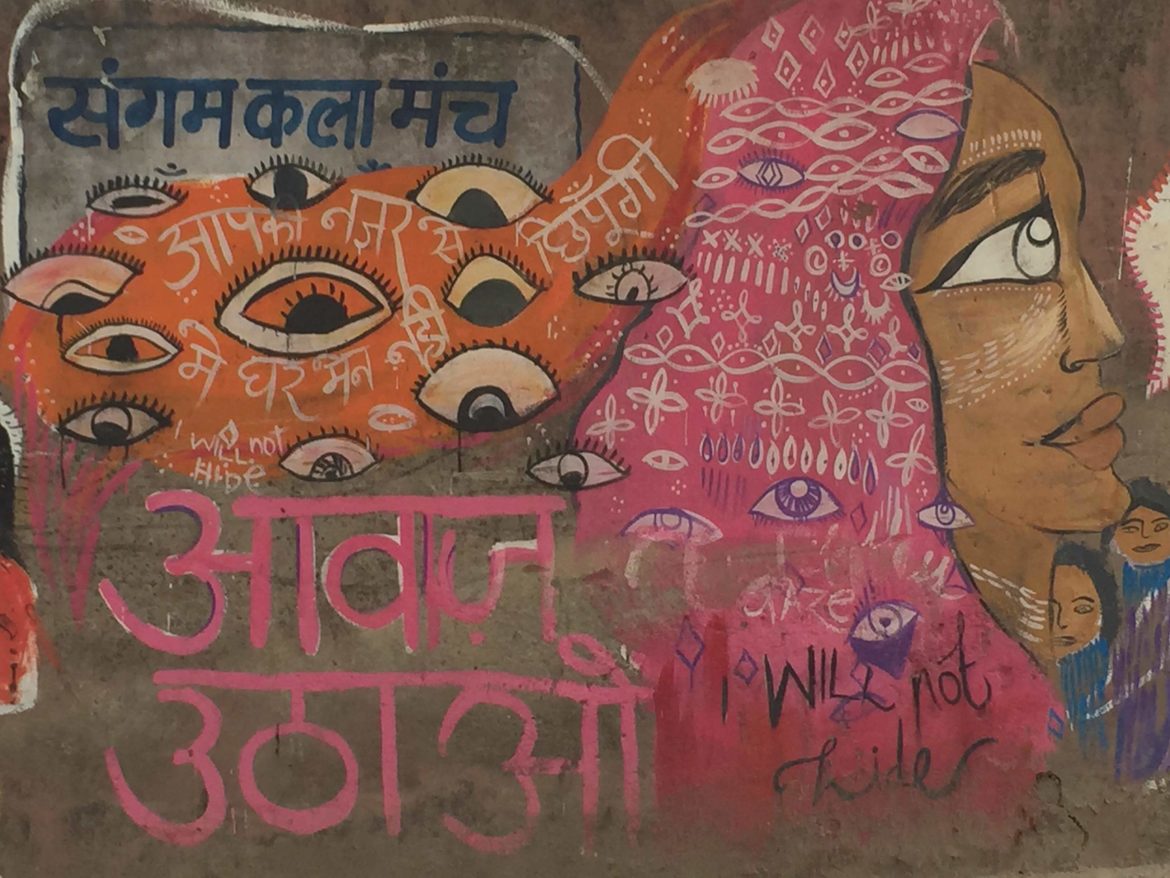 संगम कला मंच
आपकी नज़र से छिपूँगी
मे घर मन नही
I WILL not
Hide
आवाज़
उठाओ
I WILL not
hide